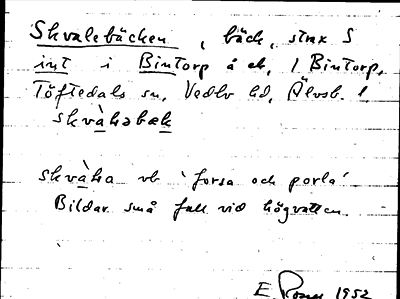 Skvalebäcken, bäck, strax S
int i Bintorp å ek, 1 Bintorp,
Töftedals sn, Vedbo hd, Älvsb. l
skvàhəbæk
skvàha vb 'forsa och porla'
Bildar små fall vid högvatten.
E. 1952